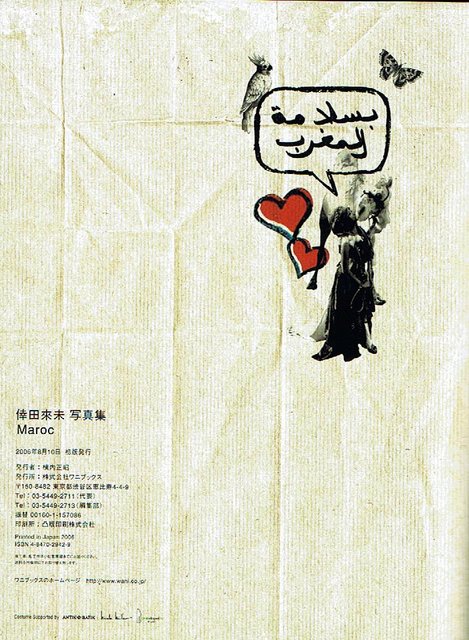 بسلامة
المغرب
倖田來未 写真集
Maroc
2006年8月10日 初版発行
発行者：横内正昭
発行所：株式会社ワニブックス
〒150-8482 東京都渋谷区恵比寿4-4-9
Tel：03-5449-2711（代表）
Tel：03-5449-2713（編集部）
振替 00160-1-157086
印刷所：凸版印刷株式会社
Printed in Japan 2006
ISBN 4-8470-2942-9
ワニブックスのホームページ http://www.wani.co.jp/
Costume Supported by ANTIK BATIK